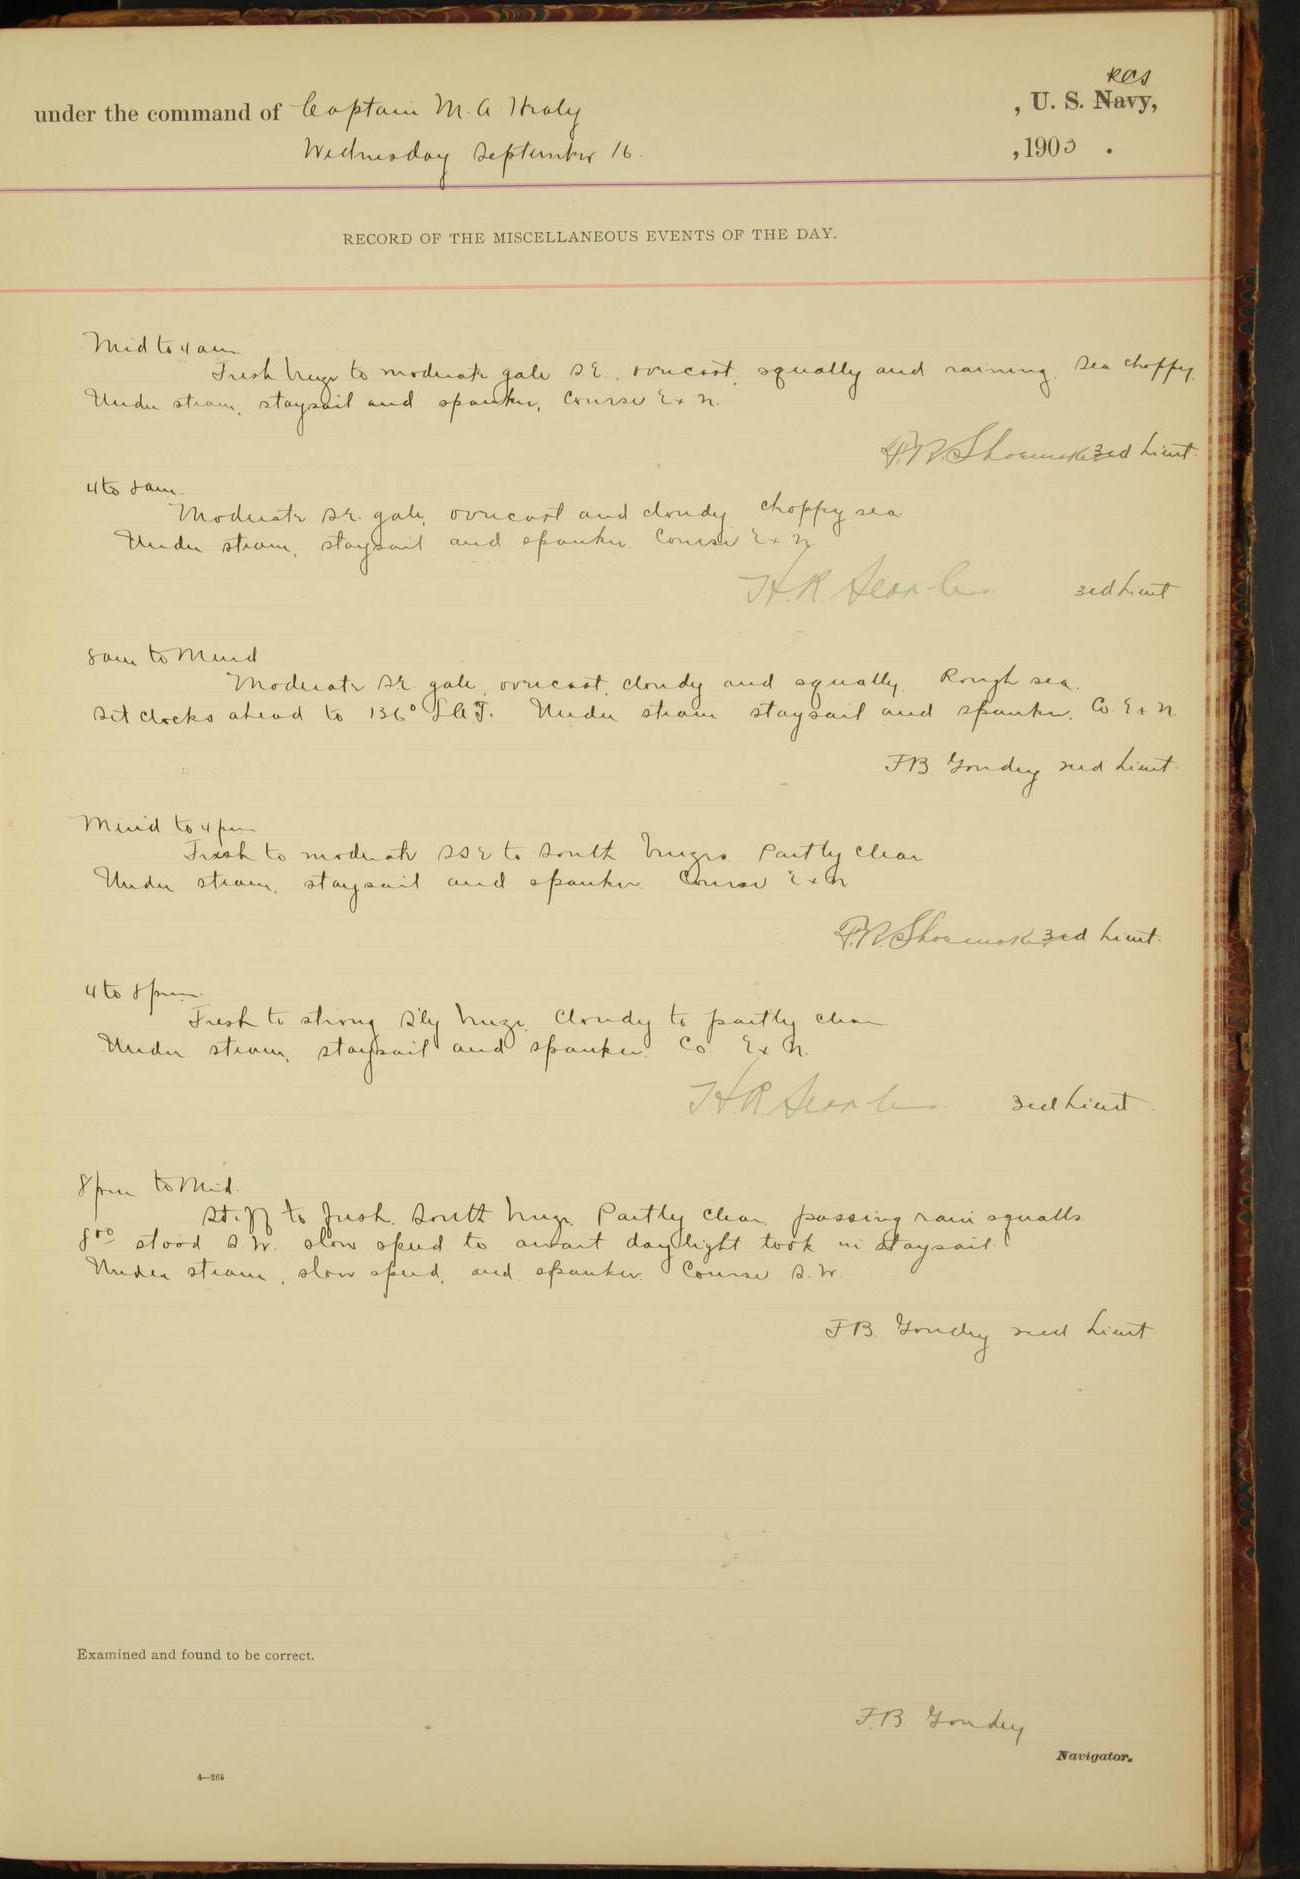 RCS
under the command of Captain M. A. Healy , U. S. Navy,
Wednesday September 16. , 1903 .
RECORD OF THE MISCELLANEOUS EVENTS OF THE DAY.
Mid to 4 am
Fresh breeze to moderate gale SE., overcast, squally and raining. Sea choppy.
Under steam, staysail and spanker, Course E x N.
F. R. Shoemaker 3rd Lieut.
4 to 8 am.
Moderate SE. gale, overcast and cloudy choppy sea
Under steam, staysail and spanker. Course E x N
H. R. Searles 3rd Lieut
8 am to Merid
Moderate SE. gale, overcast, cloudy and squally. Rough sea.
Set clocks ahead to 136° Under steam staysail and spanker. Co. E x N.
FB. Goudey 2nd Lieut.
Merid to 4 pm
Fresh to moderate SSE to South breezes. Partly clear
Under steam, staysail and spanker. Course E x N
F. R. Shoemaker 3rd Lieut.
4 to 8 pm.
Fresh to strong S'ly breeze. Cloudy to partly clear
Under steam, staysail and spanker. Co. E x N.
H. R. Searles 3rd Lieut.
8 pm to Mid.
Stiff to fresh South breeze. Partly clear passing rain squalls.
8 00 stood S.W. slow speed to await daylight took in staysail.
Under steam, slow speed, and spanker. Course S.W.
FB. Goudey 2nd Lieut.
Examined and found to be correct.
F.B. Goudey
Navigator.
4—265